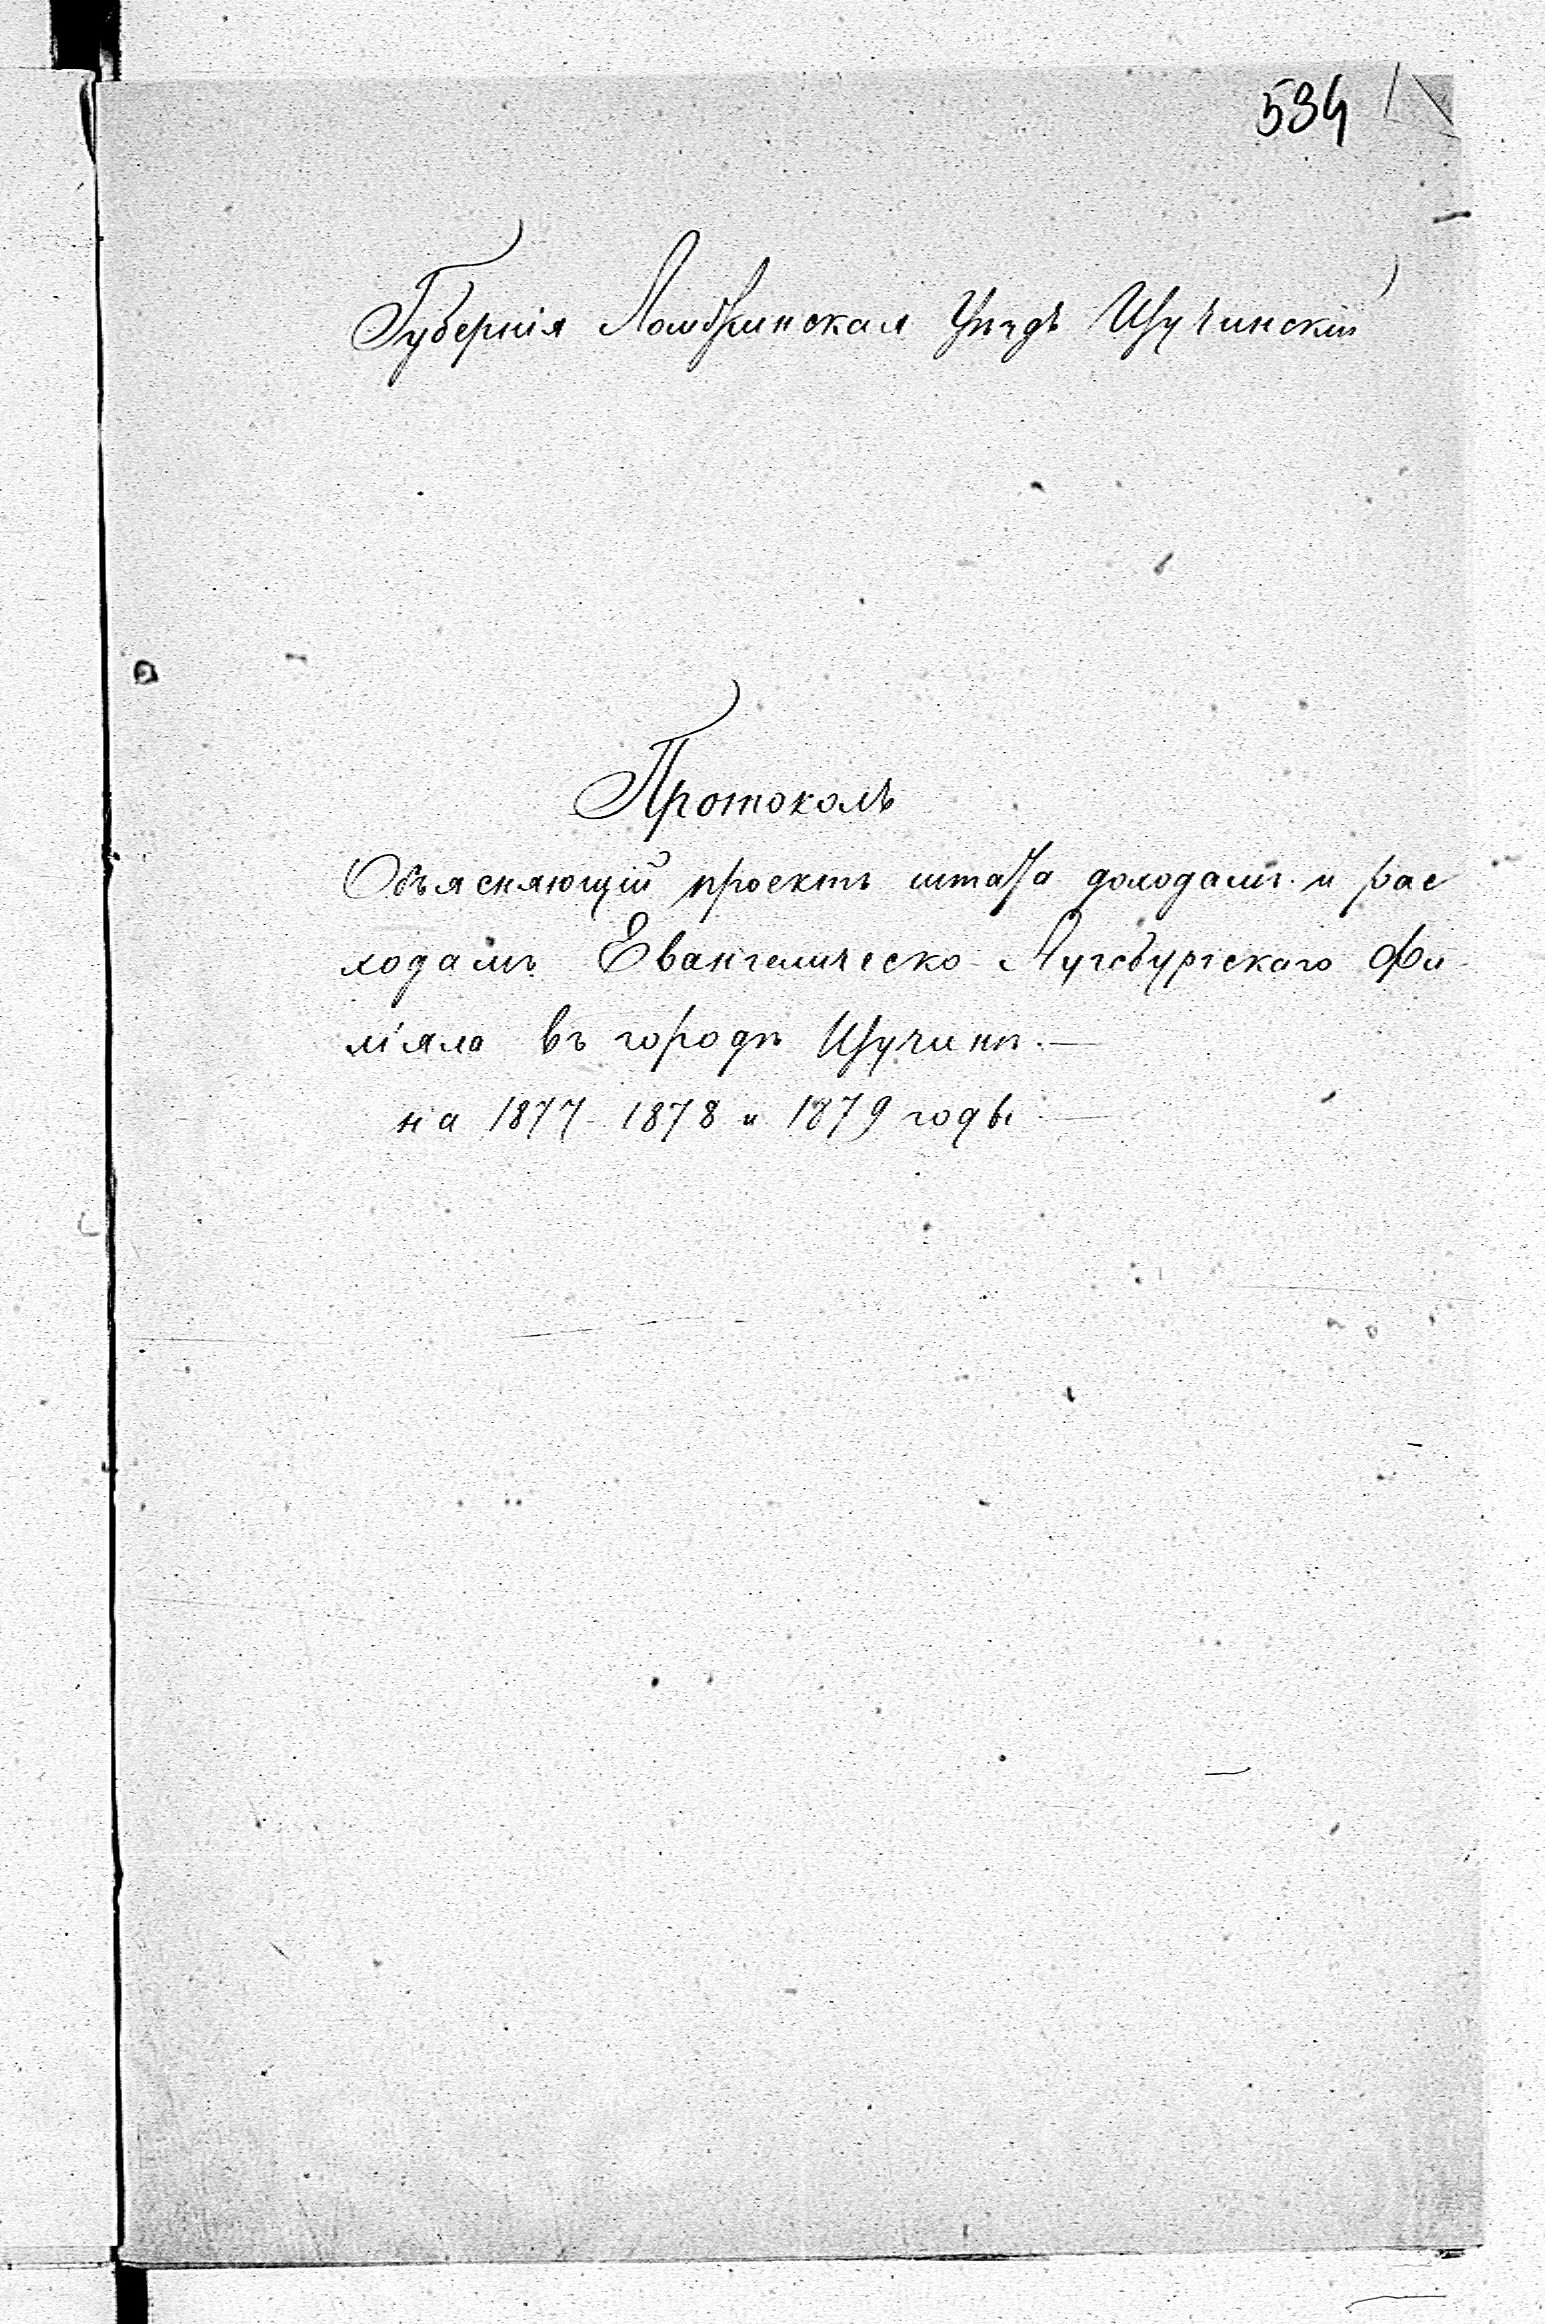 534
Губернія Ломжинская Уѣздъ Щучинскій
Протоколъ
Объясняющій проектъ штата доходамъ и рас
ходамъ Евангелическо-Аугсбургскаго Фи-
ліяла въ городѣ Щучинѣ.—
на 1877-1878 и 1879 годы —